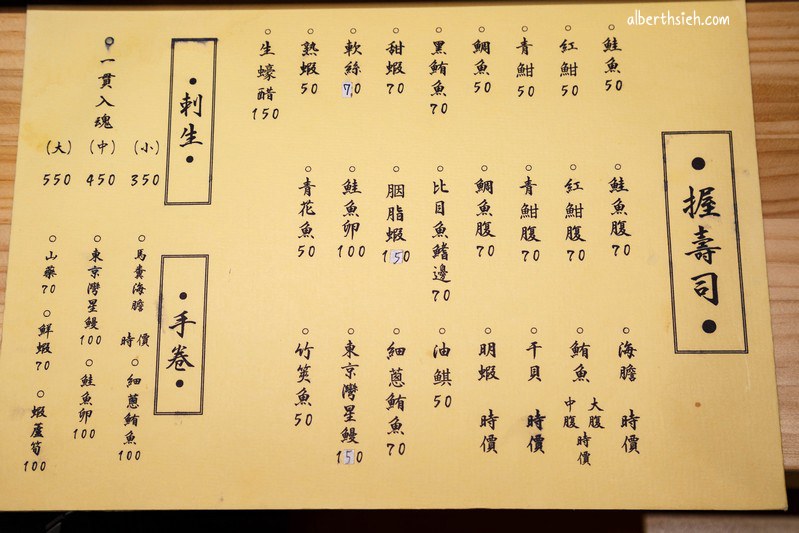 alberthsieh.com
握壽司
鮭魚 50
紅魽 50
青魽 50
鯛魚 50
黑鮪魚 70
甜蝦 70
軟絲 70
熟蝦 50
生蠔醋 150
鮭魚腹 70
紅魽腹 70
青魽腹 70
鯛魚腹 70
比目魚鰭邊 70
胭脂蝦 150
鮭魚卵 100
青花魚 50
海膽 時價
鮪魚 大腹 中腹 時價
干貝 時價
明蝦 時價
油鯕 50
細蔥鮪魚 70
東京灣星鰻 150
竹筴魚 50
刺生
一貫入魂
(小) 350
(中) 450
(大) 550
手卷
馬糞海膽 時價
細蔥鮪魚 100
東京灣星鰻 100
鮭魚卵 100
山藥 70
鮮蝦 70
蝦蘆筍 100